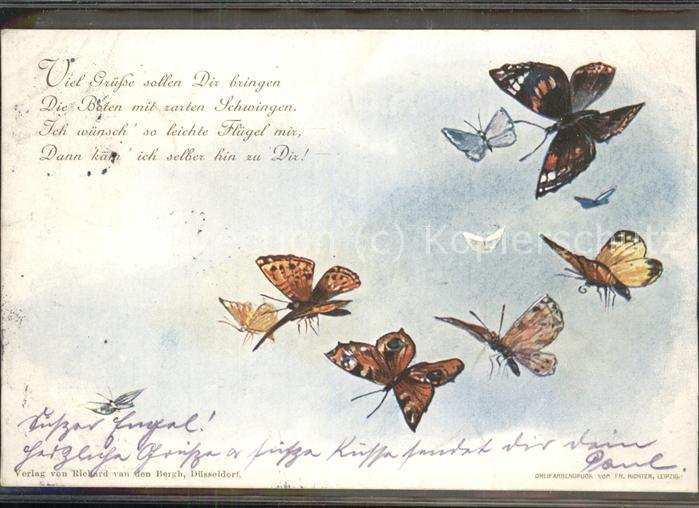 Viel Grüße sollen Dir bringen
Die Boten mit zarten Schwingen.
Ich wünsch' so leichte Flügel mir,
Dann käm' ich selber hin zu Dir!
Süßer Engel!
Herzliche Grüße & süße Küsse sendet dir dein
Paul.
Verlag von Richard van den Bergh, Düsseldorf.
DREIFARBENDRUCK VON FR. RICHTER, LEIPZIG.
(c)